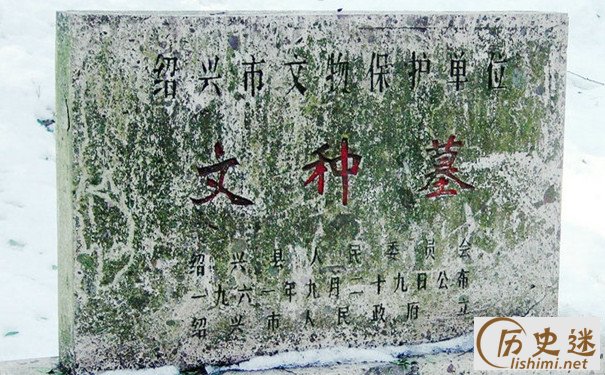 绍兴市文物保护单位
文种墓
绍兴县人民委员会
一九六一年九月二十九日公布
绍兴市人民政府立
历史迷
lishimi.net